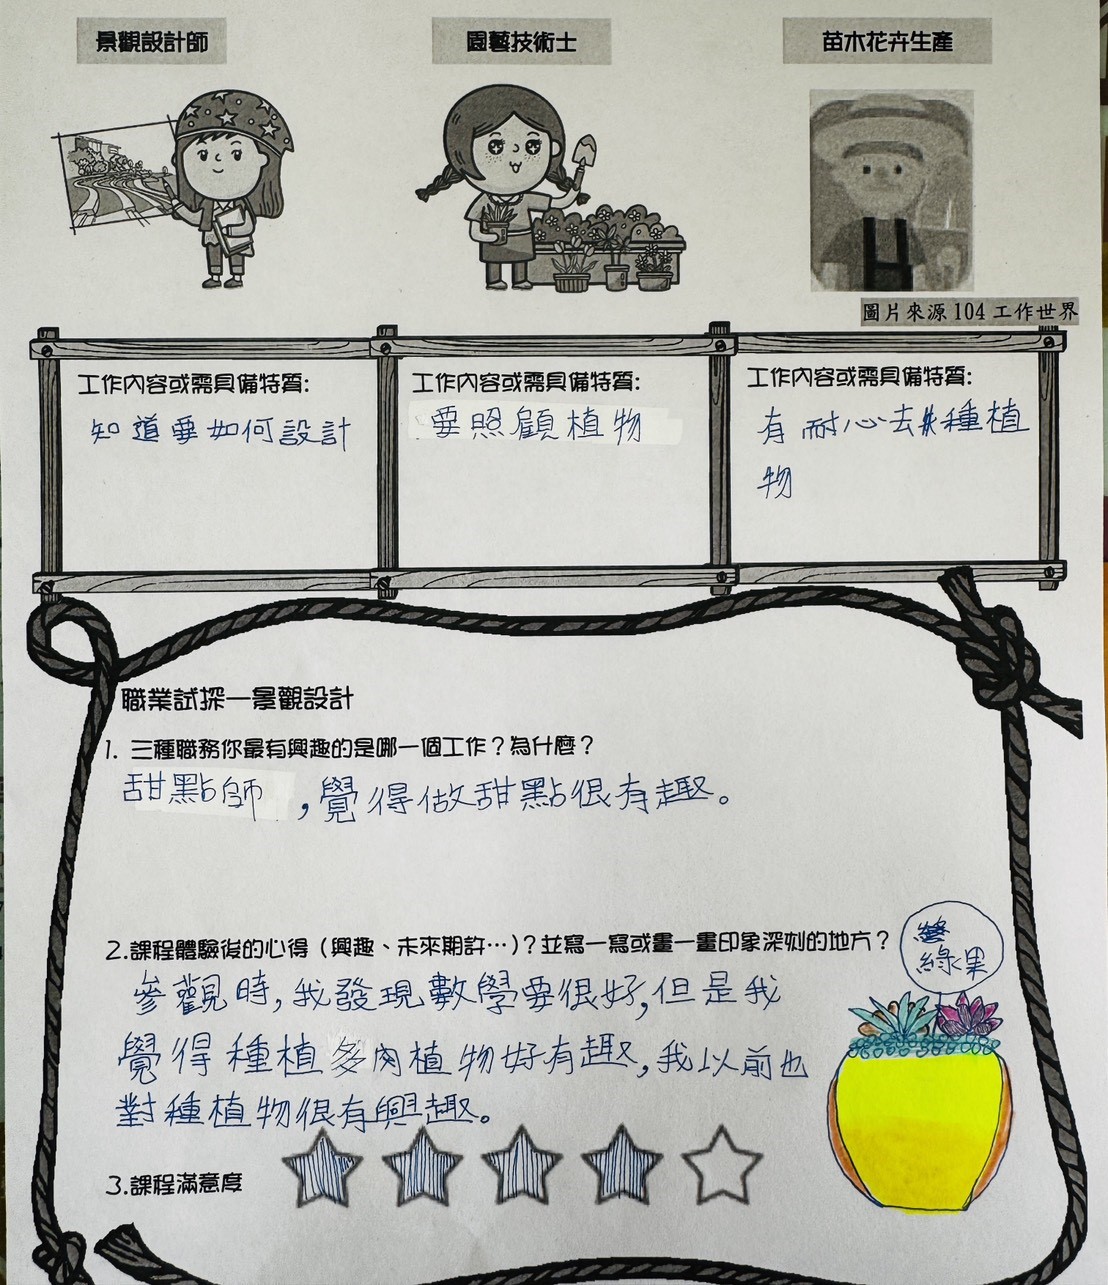 景觀設計師
園藝技術士
苗木花卉生產
圖片來源 104 工作世界
工作內容或需具備特質:
知道要如何設計
工作內容或需具備特質:
要照顧植物
工作內容或需具備特質:
有耐心去種植
物
職業試探—景觀設計
1. 三種職務你最有興趣的是哪一個工作？為什麼？
甜點師，覺得做甜點很有趣。
2.課程體驗後的心得（興趣、未來期許…)？並寫一寫或畫一畫印象深刻的地方？
參觀時,我發現數學要很好,但是我
覺得種植多肉植物好有趣,我以前也
對種植物很有興趣。
3.課程滿意度